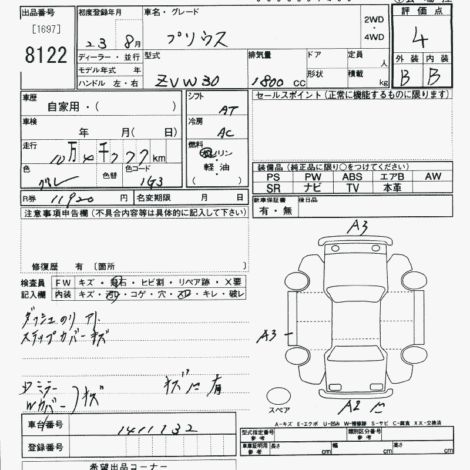 出品番号 初度登録年月 車名・グレード 2WD ・ 4WD 評価点
[1697] 23年 8月 プリウス 4
8122 ディーラー・並行 型式 排気量 ドア 積載量 外装 内装
モデル年式 年
ハンドル 左・右 ZVW30 1800 CC 形状 kg B B
車歴 自家用・( ) シフト AT セールスポイント(正常に機能するものに限る)
車検 年 月( 日) 冷房 AC
走行 km 燃料 ガソリン・軽油
色 色替 色コード 1G3
装備品(純正品に限り○をつけてください)
PS PW ABS エアB AW
SR ナビ TV 本革
R券 11920 円 名変期限 月 日 新車保証書 有・無
注意事項申告欄(不具合内容等は具体的に記入して下さい)
修復歴 有〔箇所 〕
検査員記入欄 FW キズ・飛石・ヒビ割・リペア跡・X要
内装 キズ・汚れ・コゲ・穴・スレ・キレ・破レ
A3
A3
A2
ステップカバーキズ
スペア
A-キズ E-エクボ U-凹み W-補修跡 S-サビ C-腐食 XX-交換済
車台番号 1411132
登録番号
型式指定番号 参考 類別区分番号 参考
車両証明用 参考 長さ cm 幅 cm 高さ cm
希望出品コーナー